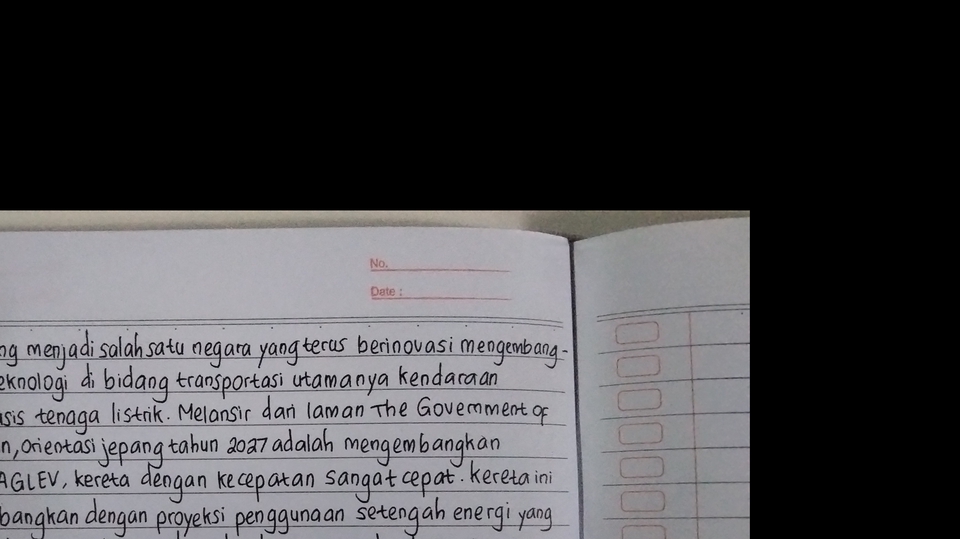 No.
Date :
ng menjadi salah satu negara yang terus berinovasi mengembang-
eknologi di bidang transportasi utamanya kendaraan
asis tenaga listrik. Melansir dari laman The Government of
n, orientasi jepang tahun 2027 adalah mengembangkan
AGLEV, kereta dengan kecepatan sangat cepat. kereta ini
bangkan dengan proyeksi penggunaan setengah energi yang